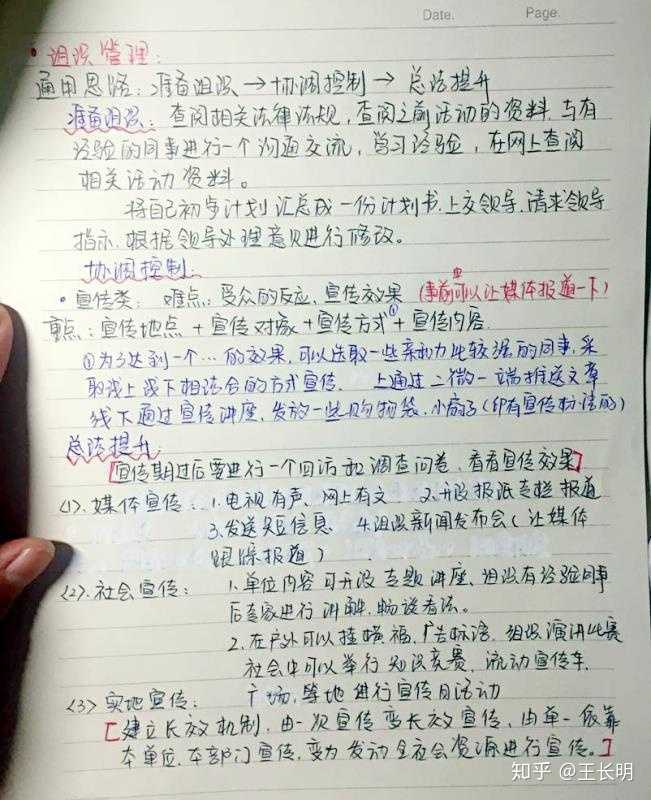 Date.  Page.
• 组织管理:
通用思路: 准备组织 → 协调控制 → 总结提升
准备组织: 查阅相关法律法规, 查阅之前活动的资料. 与有
经验的同事进行一个沟通交流, 学习经验, 在网上查阅
相关活动资料。
将自己初步计划汇总成一份计划书. 上交领导. 请求领导
指示. 根据领导处理意见进行修改。
协调控制:
• 宣传类: 难点: 受众的反应、宣传效果 (事前可以让媒体报道一下)
重点: 宣传地点 + 宣传对象 + 宣传方式① + 宣传内容.
①为了达到一个…的效果, 可以选取一些亲和力比较强的同事, 采
取线上线下相结合的方式宣传. 上通过二微一端推送文章
线下通过宣传讲座, 发放一些购物袋. 小扇子 (印有宣传标语的)
总结提升:
[宣传期过后要进行一个回访和调查问卷, 看看宣传效果]
(1). 媒体宣传: 1. 电视有声、网上有文 2. 开设报纸专栏报道
3. 发送短信息 4. 组织新闻发布会 (让媒体
跟踪报道)
(2). 社会宣传: 1. 单位内容可开设专题讲座. 组织有经验同事
后专家进行讲解. 畅谈看法。
2. 在户外可以挂横福, 广告标语. 组织演讲比赛
社会中可以举行知识竞赛. 流动宣传车.
(3) 实地宣传: 广场, 等地进行宣传日活动
[建立长效机制, 由一次宣传变长效宣传, 由单一依靠
本单位. 本部门宣传, 变为发动全社会资源进行宣传。]
知乎 @王长明